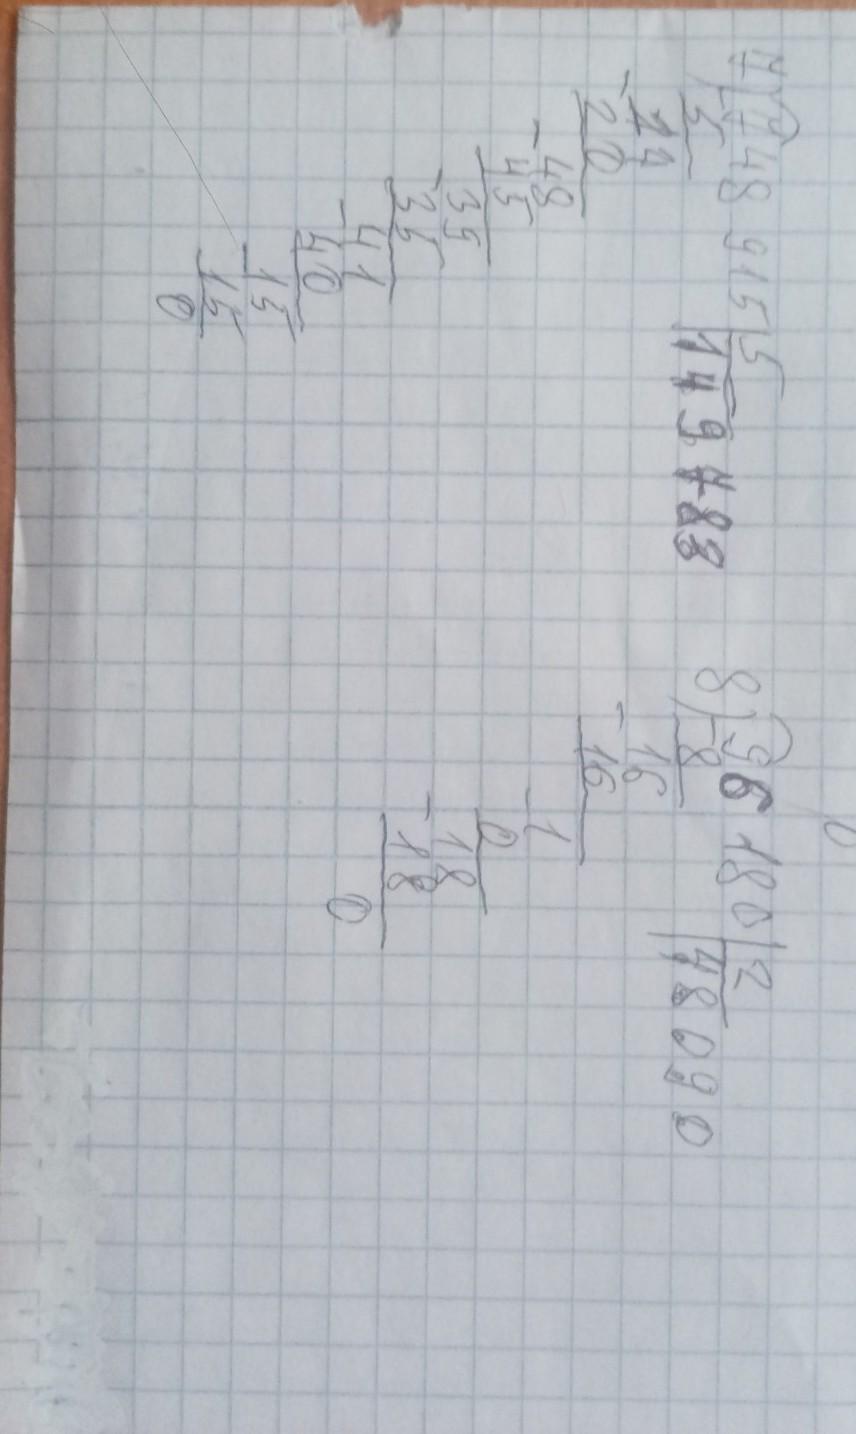 7) 748 915 | 5
- 5
149 783
- 24
20
- 48
45
- 39
35
- 41
40
- 15
15
0
8) 96 180 | 2
- 8
48090
- 16
16
- 1
0
- 18
18
0